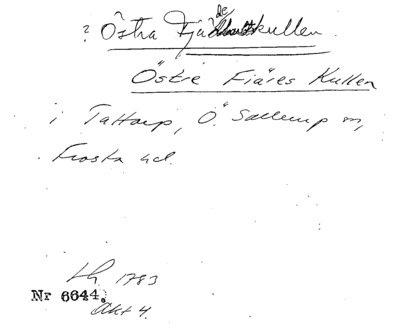 ? Östra Fjäde kullen
Östre Fiäres Kullen
i Tattarp, Ö. Sallerup sn,
Frosta hd.
Lh 1783
Nr 6644.
Akt 4.